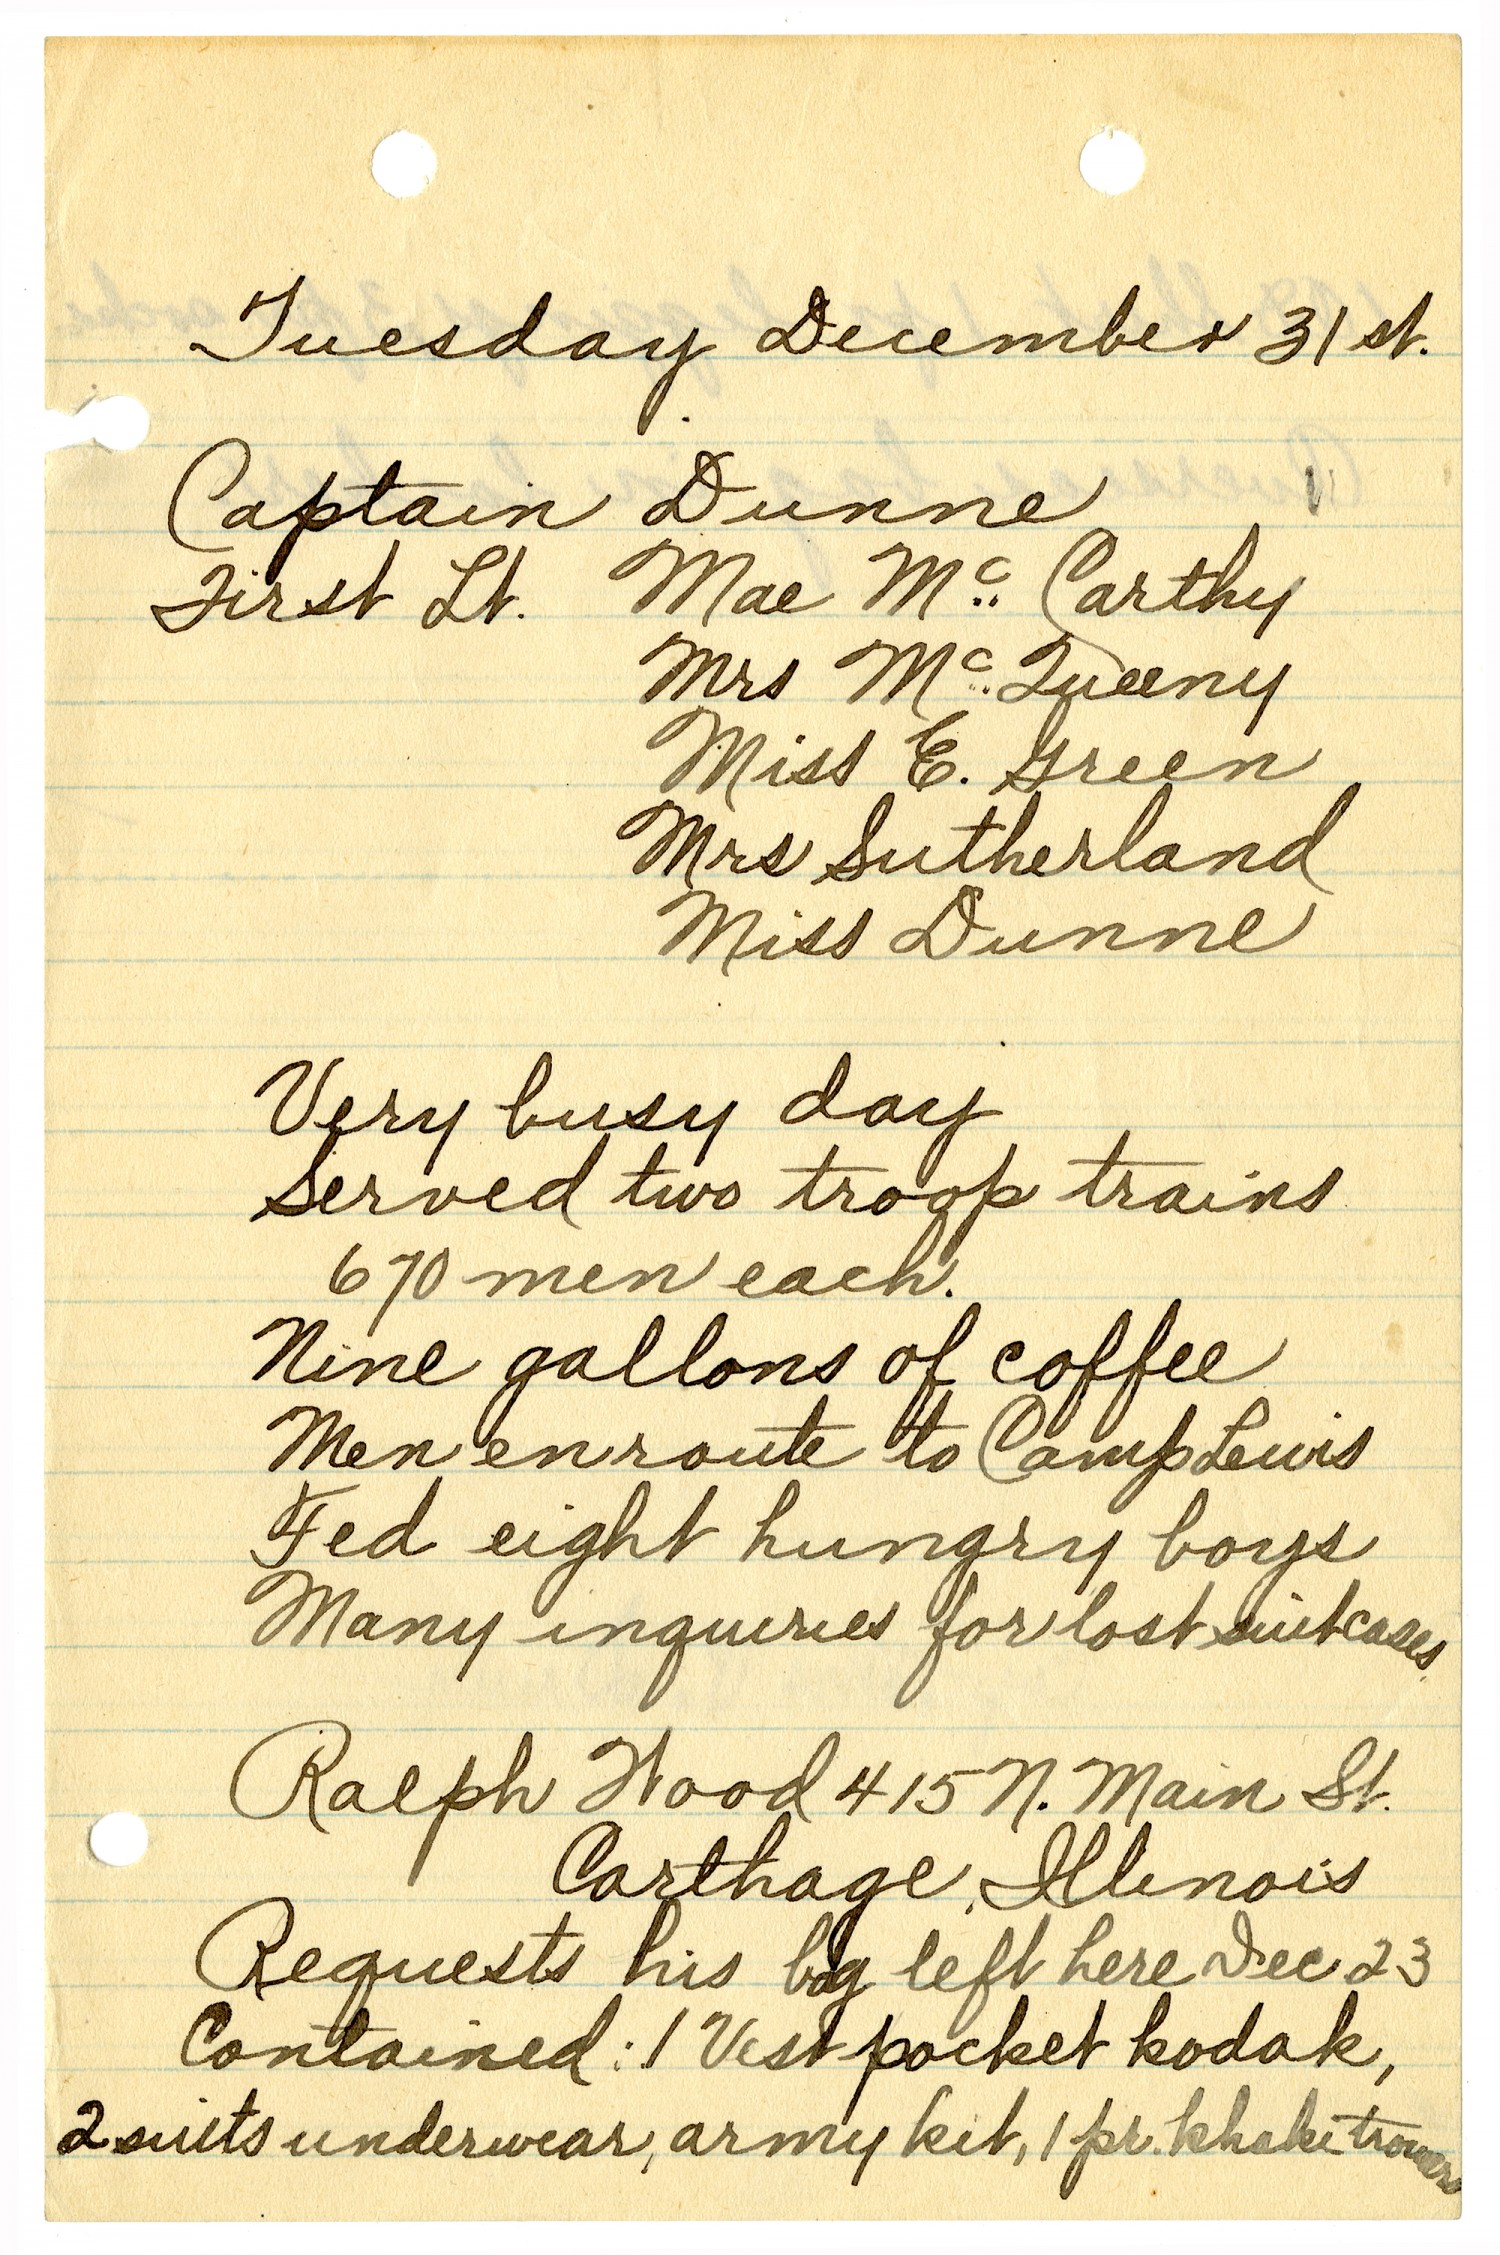 Tuesday December 31st.
Captain Dunne
First Lt. Mae Mc. Carthy
Mrs Mc. Queeny
Miss E. Green
Mrs Sutherland
Miss Dunne
Very busy day
Served two troop trains
670 men each.
Nine gallons of coffee
Men enroute to Camp Lewis
Fed eight hungry boys
Many inquiries for lost suitcases.
Ralph Wood 415 N. Main St.
Carthage, Illinois
Requests his bag left here Dec 23
Contained: 1 Vest pocket kodak,
2 suits underwear, army kit, 1 pr. khaki trousers